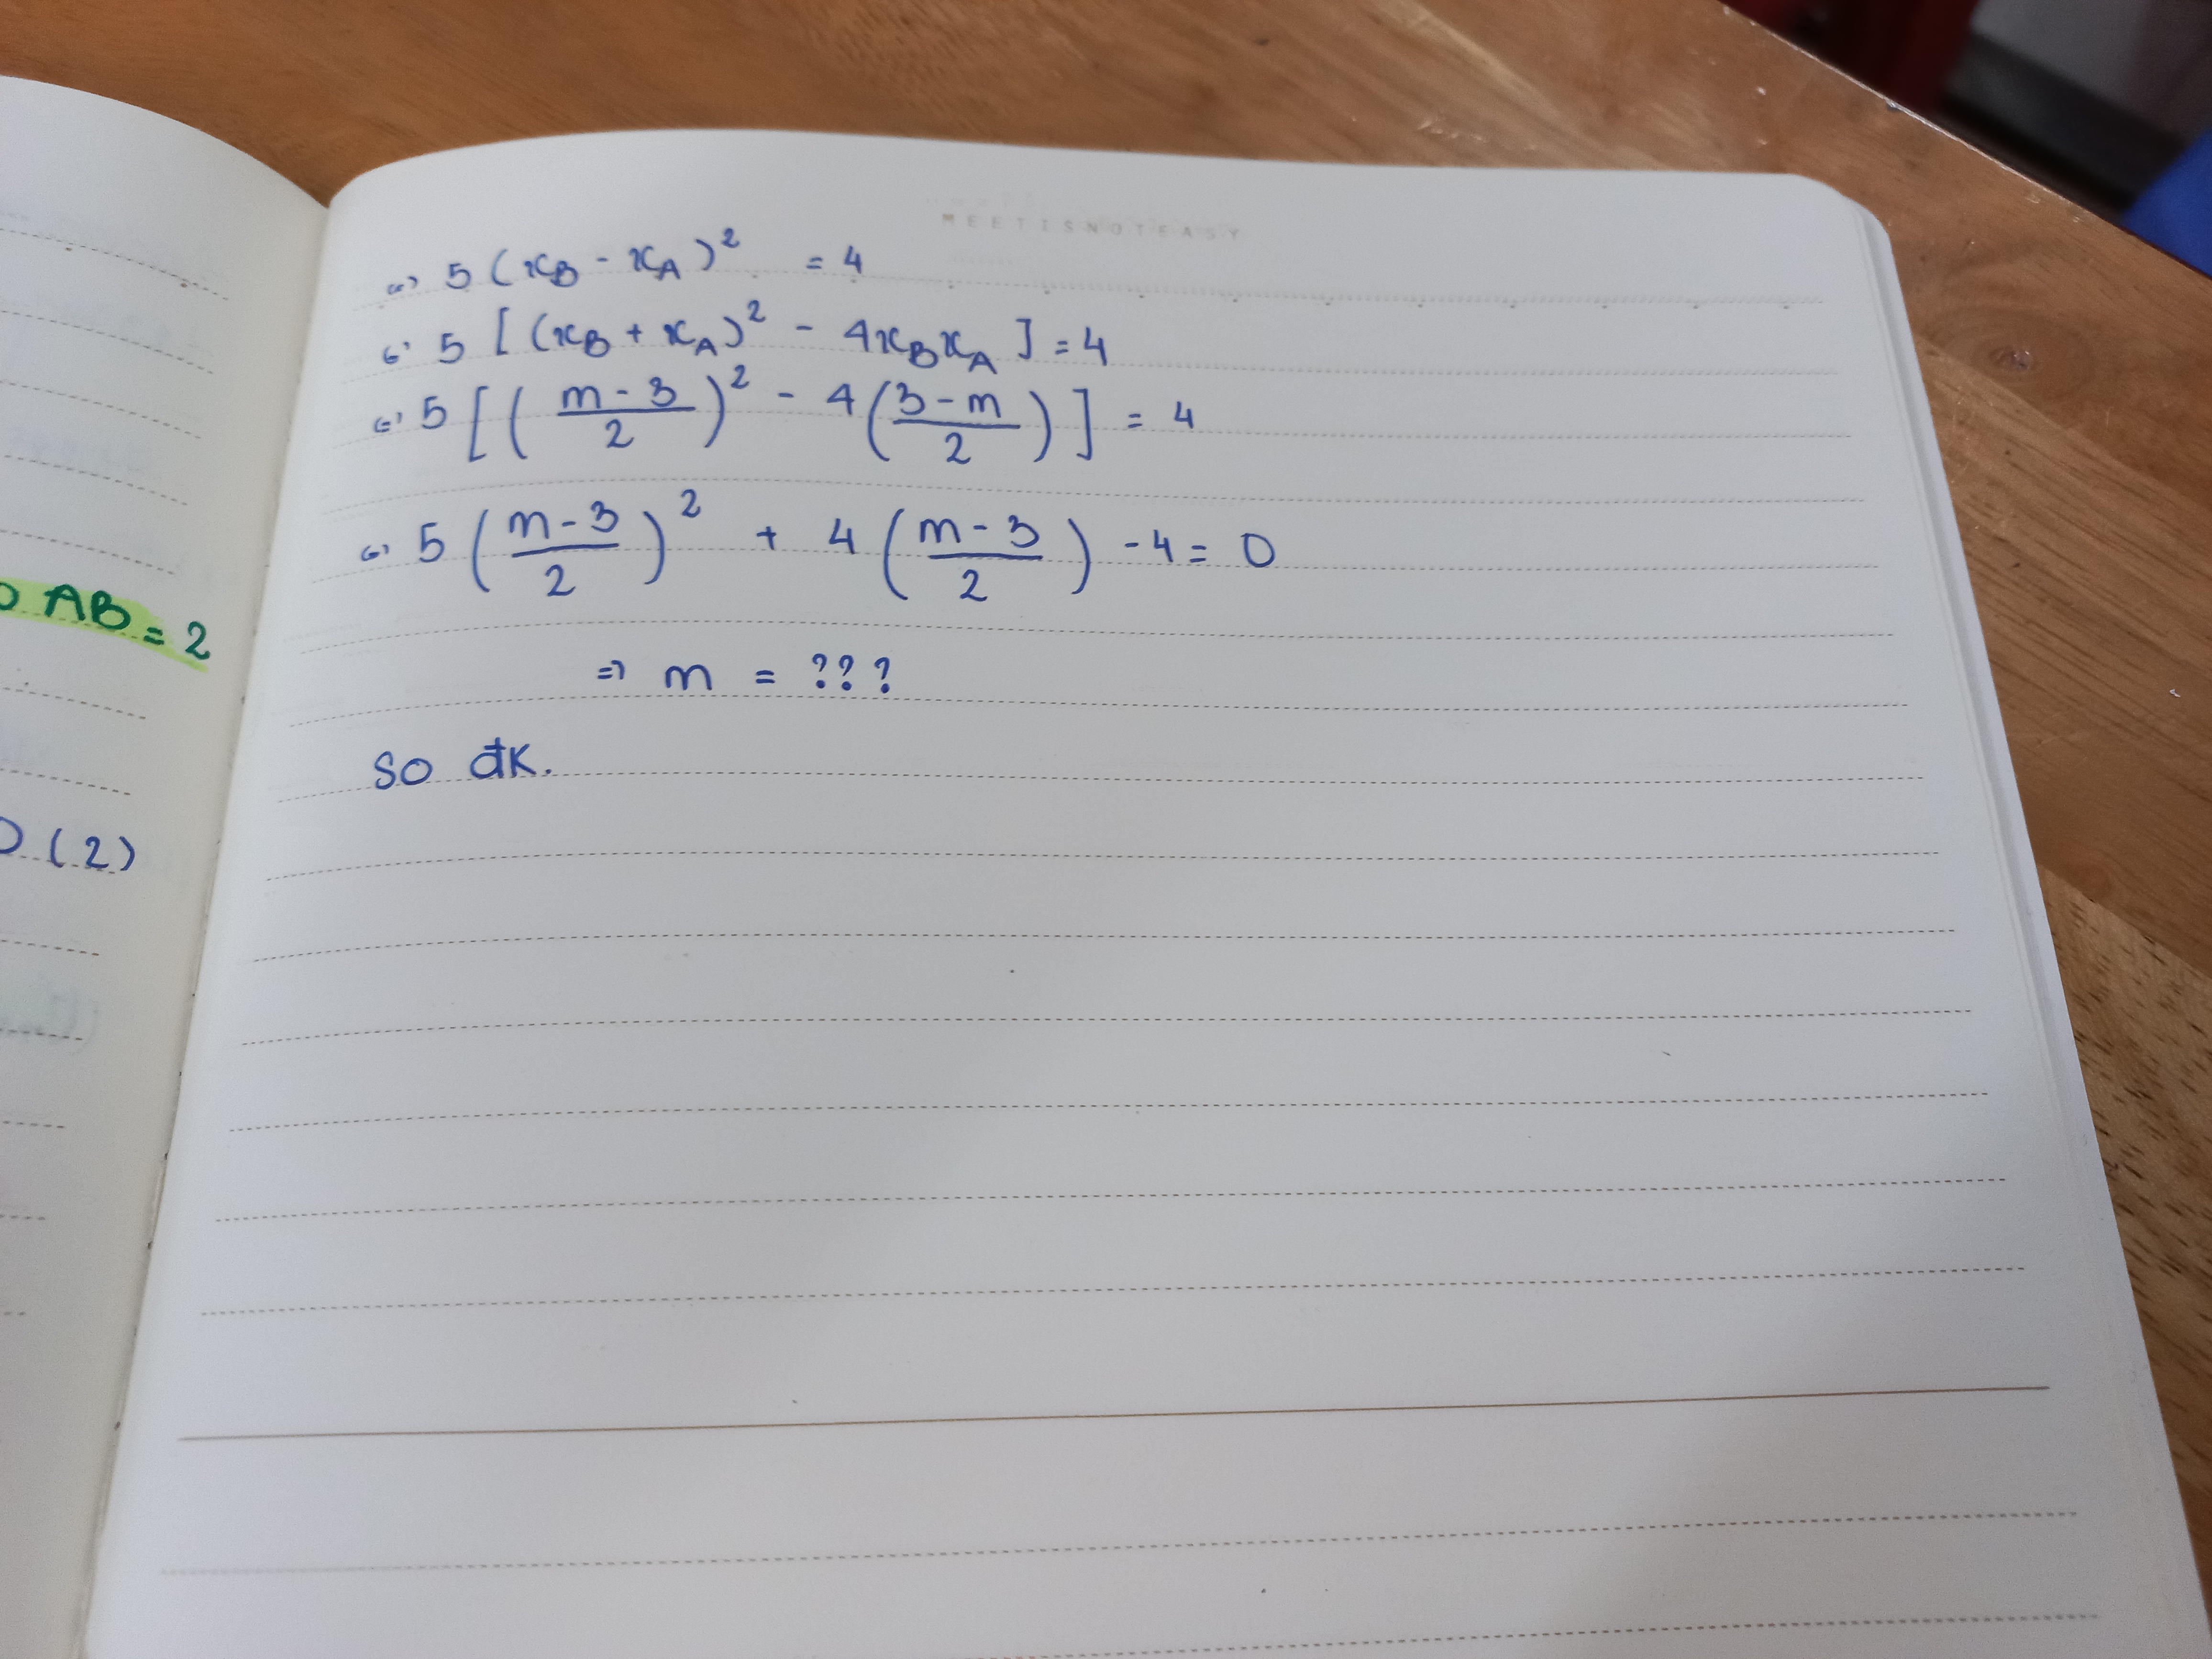 AB = 2
(2)
MEETISNOTEASY
<=> 5 (x_B - x_A)^2 = 4
<=> 5 [(x_B + x_A)^2 - 4x_Bx_A] = 4
<=> 5 [((m-3)/2)^2 - 4((3-m)/2)] = 4
<=> 5 ((m-3)/2)^2 + 4 ((m-3)/2) - 4 = 0
=> m = ???
So đK.